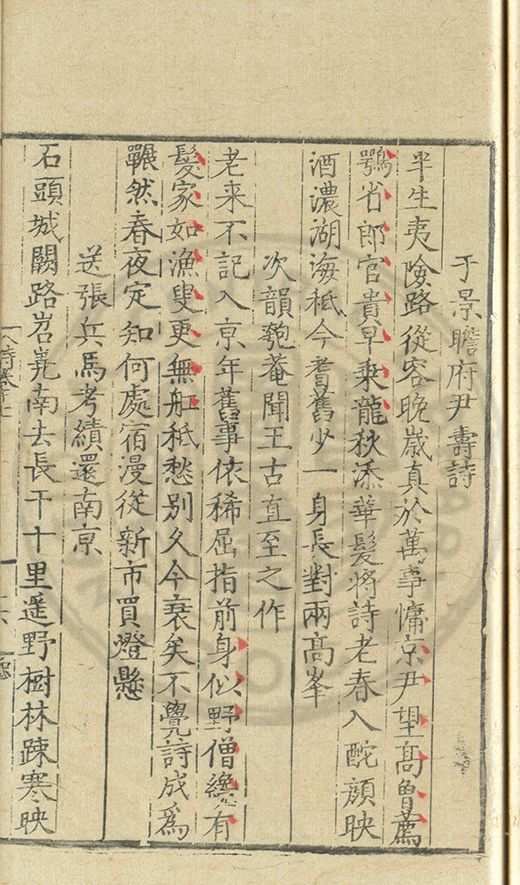 于景瞻府尹壽詩
半生夷險路從容晚歲真於萬事慵京尹望髙曽薦
鶚省郎官貴早乗龍秋添華髮將詩老春入酡顔映
酒濃湖海秪今耆舊少一身長對兩髙峯
次韻匏菴聞王古直至之作
老来不記入京年舊事依稀屈指前身似野僧纔有
髮家如漁叟更無舡秪愁别久今衰矣不覺詩成爲
囅然春夜定知何處宿漫從新市買燈懸
送張兵馬考績還南京
石頭城闕路岧嶤南去長干十里遥野樹林踈寒映